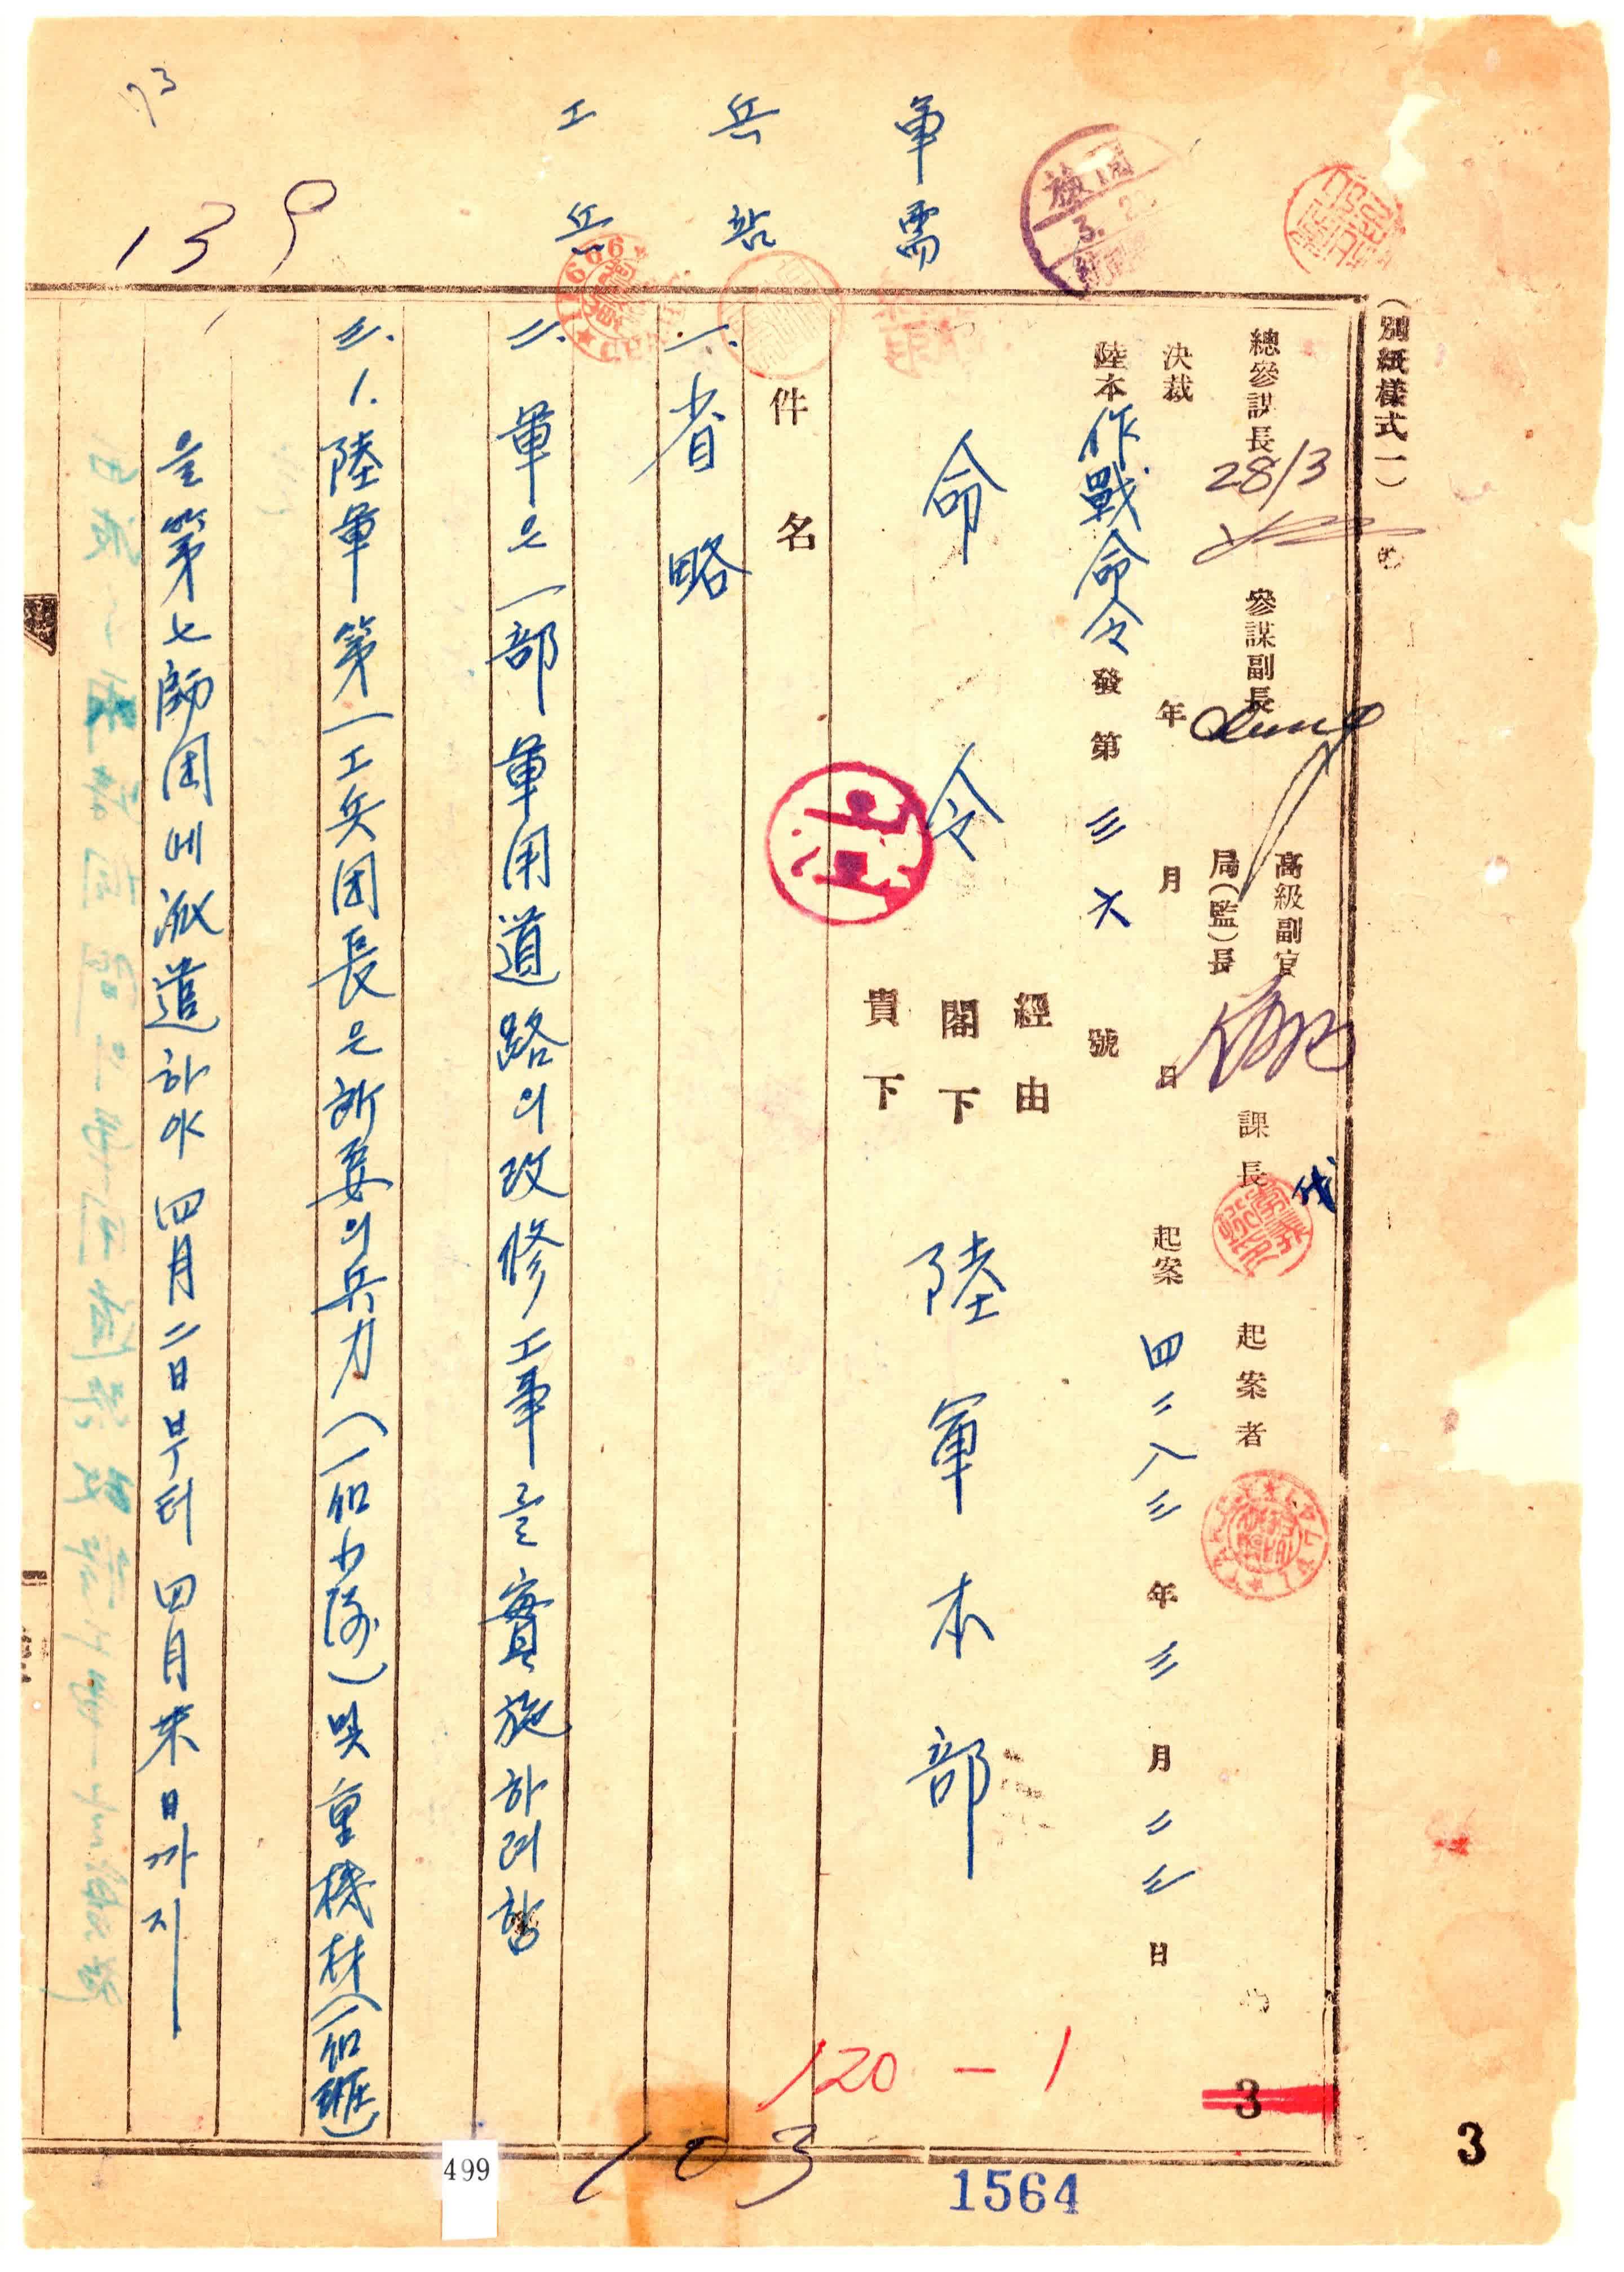 (別紙樣式一)
總參謀長 參謀副長 高級副官 局(監)長 課長 代 起案者
28/3
決裁 年 月 日 起案 四二八三年 三月 二三日
陸本作戰命令 發 第 三六 號
經由
命令 閣下 陸軍本部
貴下
件名
軍需
兵站
工兵
一、省略
二、軍은 一部 軍用道路의 改修工事를 實施하려함
三、1. 陸軍第一工兵団長은 所要의 兵力(一個小隊)與重機材(一個班)
을 第七師団에 派遣하야 四月二日부터 四月末日까지
73
139
120-1
103
3
3
499
1564